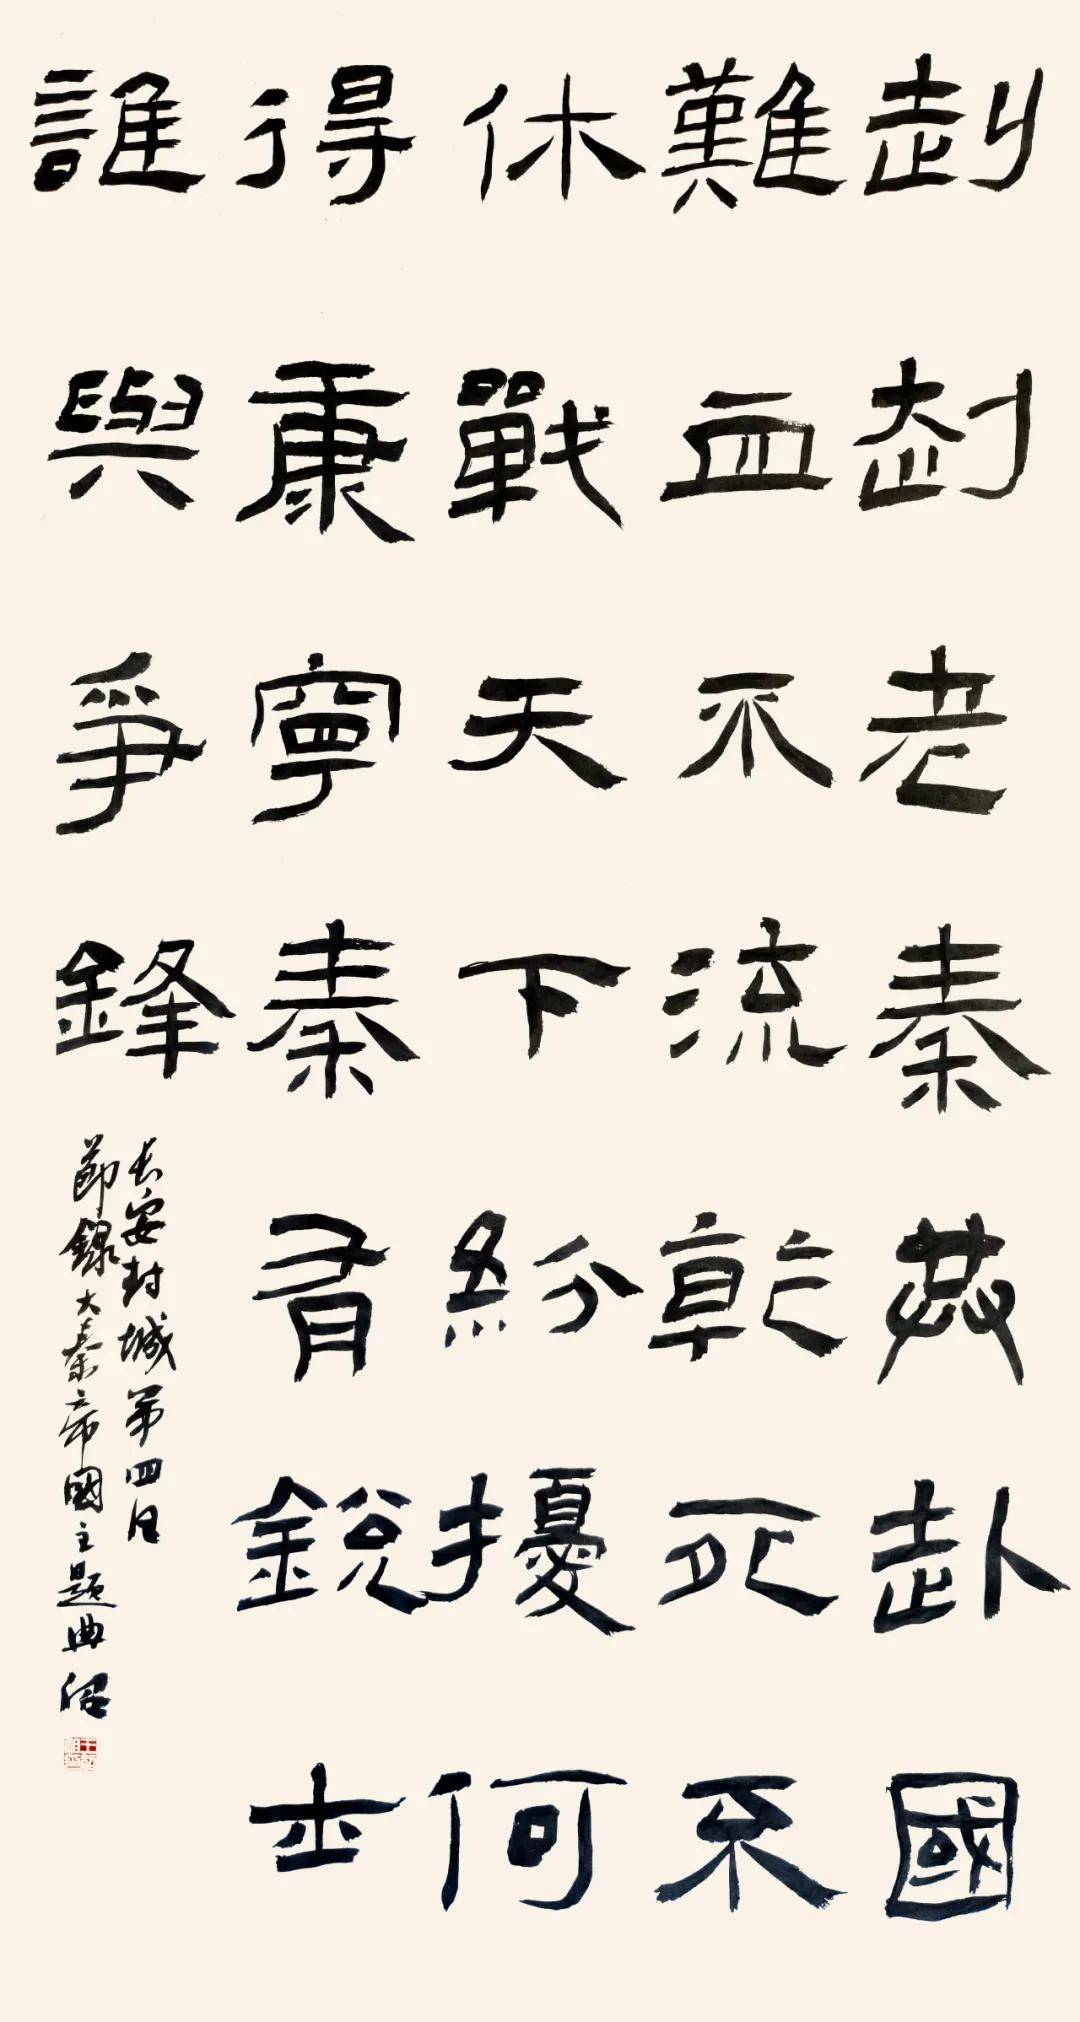 赳赳老秦共赴國
難血不流乾死不
休戰天下紛擾何
得康寧秦有銳士
誰與爭鋒
长安封城第四日
節錄大秦帝國主題曲